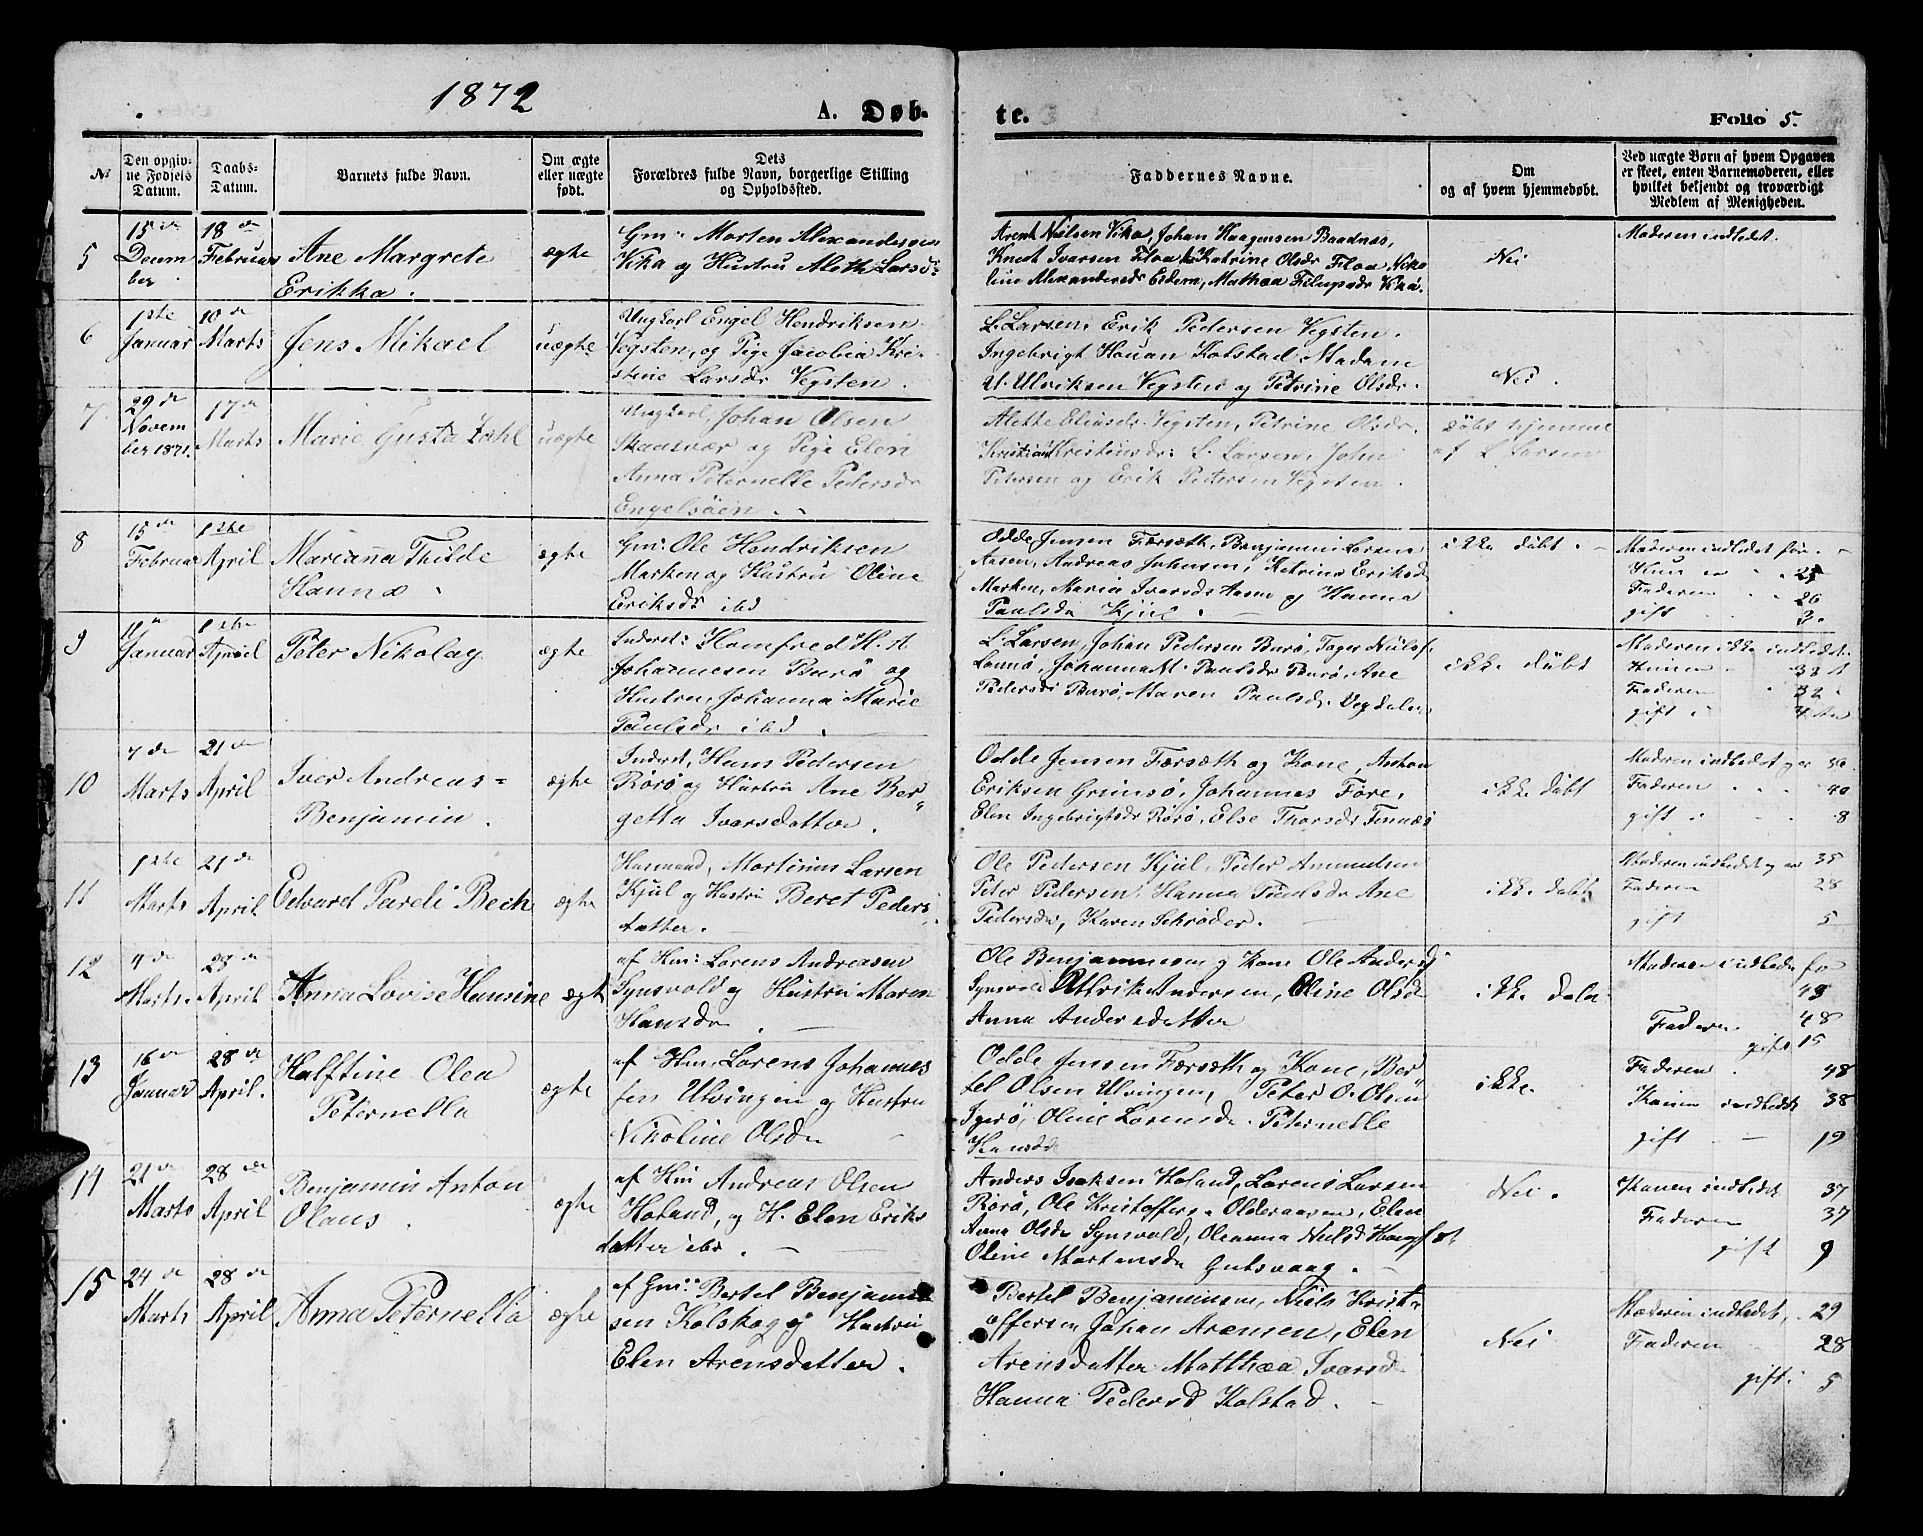 1872
A. Døb-
te.
Folio 5.
No
Den opgiv-
ne Fødsels
Datum.
Daabs-
Datum.
Barnets fulde Navn.
Om ægte
eller uægte
født.
Dets
Forældres fulde Navn, borgerlige Stilling
og Opholdssted.
Faddernes Navne.
Om
og af hvem hjemmedøbt.
Ved uægte Børn af hvem Opgaven
er skeet, enten Barnemoderen, eller
hvilket bekjendt og troværdigt
Medlem af Menigheden.
5
15de
Decem
ber
18de
Februar
Ane Margrete
Erikka.
ægte
Gm: Morten Alexandersen
Vika og Hustru Aleth Larsd:
Arent Nielsen Vika, Johan Haagensen Baadnes,
Knut Ivarsen Floa Katrine Olsdr Floa, Niko
line Alexandersdr Eidem, Mathea Filupsdr
Nei
Moderen indledet.
6
1ste
Januar
10de
Marts
Jens Mikael
uægte
Ungkarl Engel Hendriksen
Vegsten, og Pige Jacobia Kri-
stine Larsdr Vegsten.
L. Larsen, Erik Pedersen Vegsten.
Ingebrigt Houan Kolstad Madam
U. Ulriksen Vegsten og Petrine Olsdr.
Nei.
7
29de
Novem
ber 1871.
17de
Marts
Marie Gusta Zahl
uægte
Ungkarl, Johan Olsen
Skaasvær og Pige Elen
Anna Peternelle Pedersdr
Engelsöen.
Alette Eliasdr Vegsten, Petrine Olsdr.
Kristiane Kristensdr: L. Larsen, John
Petersen og Erik Petersen Vegsten.
döbt hjemme
af L Larsen
8
15de
Februar
1ste
April
Mariana Thilde
Hanna.
ægte
Gm: Ole Hendriksen
Marken og Hustru Oline
Eriksdr ibd
Odde Jensen Færseth, Benjamin Larsen
Aasen, Andreas Johnsen, Katrine Eriksd
Marken, Maria Ivarsdr Aasen og Hanna
Paulsdr Kjul.
ikke döbt.
Moderen indledet
Hun er 25
Faderen 26
gift 3.
9
Januar
1ste
April
Peter Nikolay
ægte
Inderst: Homfred H. A
Johannesen Burö og
Hustru, Johanna Marie
Paulsdr ibd.
L. Larsen, Johan Pedersen Burö, Tager Nielsf
Lannö, Johanna M. Paulsdr Burö, Ane
Pedersdr Burö, Maren Paulsdr. Vegdalen
ikke döbt
Moderen ikke indledet.
Faderen 32
gift
10
7de
Marts
21de
April
Iver Andreas=
Benjamin.
ægte
Inderst, Hans Pedersen
Rörö og Hustru Ane Ber-
getta Ivarsdatter.
Odde Jensen Færseth og Kone, Anton
Eriksen Grimsö, Johannes Fore,
Elen Ingebrigtsdr Rörö, Else Thorsdr Tennes
ikke döbt
Moderen indledet
Faderen 40
gift 8
11
1ste
Marts
21de
April
Edvard Pareli Bech
ægte
Husmand, Martinus Larsen
Kjul og Hustru Beret Peders
datter.
Ole Pedersen Kjul, Peder Amundsen
Peter Pedersen, Hanna Paulsdr Ane
Pedersdr, Karen Schröder.
ikke döbt
Moderen indledet og er 35
Faderen 28
gift 5
12
4de
Marts.
28de
April
Anna Lovise Hansine
ægt
af Hm: Lorens Andreasen
Synsvold og Hustru Maren
Hansdr.
Ole Benjaminsen og Kone Ole Andersd
Synsvold Ulrik Andersen, Oline Olsdr
Anna Andersdatter
ikke
Moderen indledet
Faderen 48
gift 15
13
16de
Januar
28de
April.
Halftine Olea
Peternella
ægte
af Hm. Lorens Johannes
sen Ulvingen og Hustru
Nikoline Olsdr
Odde Jensen Færseth og Kone, Ber-
tel Olsen Ulvingen, Peter O. Olsen
Igerö, Oline Lorensdr. Peternelle
Hansdr
ikke.
Faderen 48
Konen indledet 38
gift 19
14
21de
Marts
28de
April
Benjamin Anton
Olaus.
ægte
af Hm Andreas Olsen
Holand, og H. Elen Eriks
datter ibd.
Anders Isaksen Holand, Lorens Larsen
Rörö, Ole Kristoffersen Olderaasen, Elen
Anna Olsdr Synsvold, Oleanna Nielsd
Oline Martensdr Gutsvaag.
Nei.
Konen indledet 37
Faderen 37
gift 9
15
24de
Marts
28de
April
Anna Peternella
ægte
af Gm: Bertel Benjamin
sen Kolskog og Hustru
Elen Arensdatter.
Bertel Benjaminsen, Niels Krist-
offersen Johan Arensen, Elen
Arensdatter Matthea Ivarsd
Hanna Pedersd Kolstad.
Nei
Moderen indledet, 29
Faderen 28
gift: 5